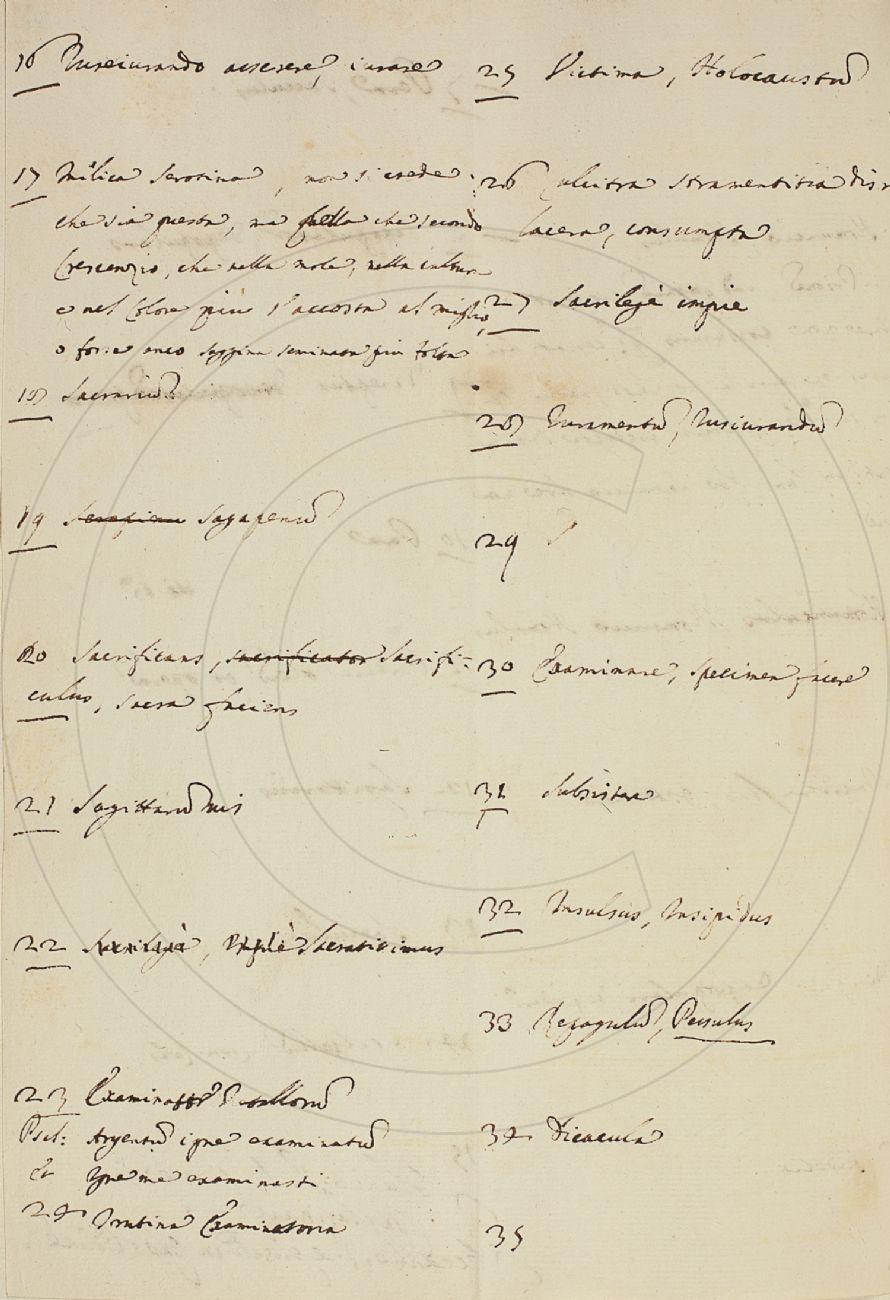 16 Iureiurando asserere, iurare
17 Milica serotina, non si crede
che sia questa, ma quella che secondo
Crescenzio, che nella mole, nella cultura
e nel colore più s'accosta al miglio,
o forse anco saggina seminata più folta
18 Sacrariũ
19 Serapinu Sagapenũ
20 Sacrificans, sacrificator Sacrifi=
culus, sacra faciens
21 Sagittariũ
22 Sacrilegè, Sacratissimus
23 Examinator
Psal: Argentũ igne examinatũ
Et Igne me examinasti
24 Trutina Examinatoria
25 Victima, Holocaustũ
26 Culcitra stramentitia
lacera, consumpta
27 Sacrilegè impie
28 Iuramentũ, Iusiurandũ
29
30 Examinare, specimen facere
31
32 Insulsus, Insipidus
33 Pessulus
34 Dicacula
35